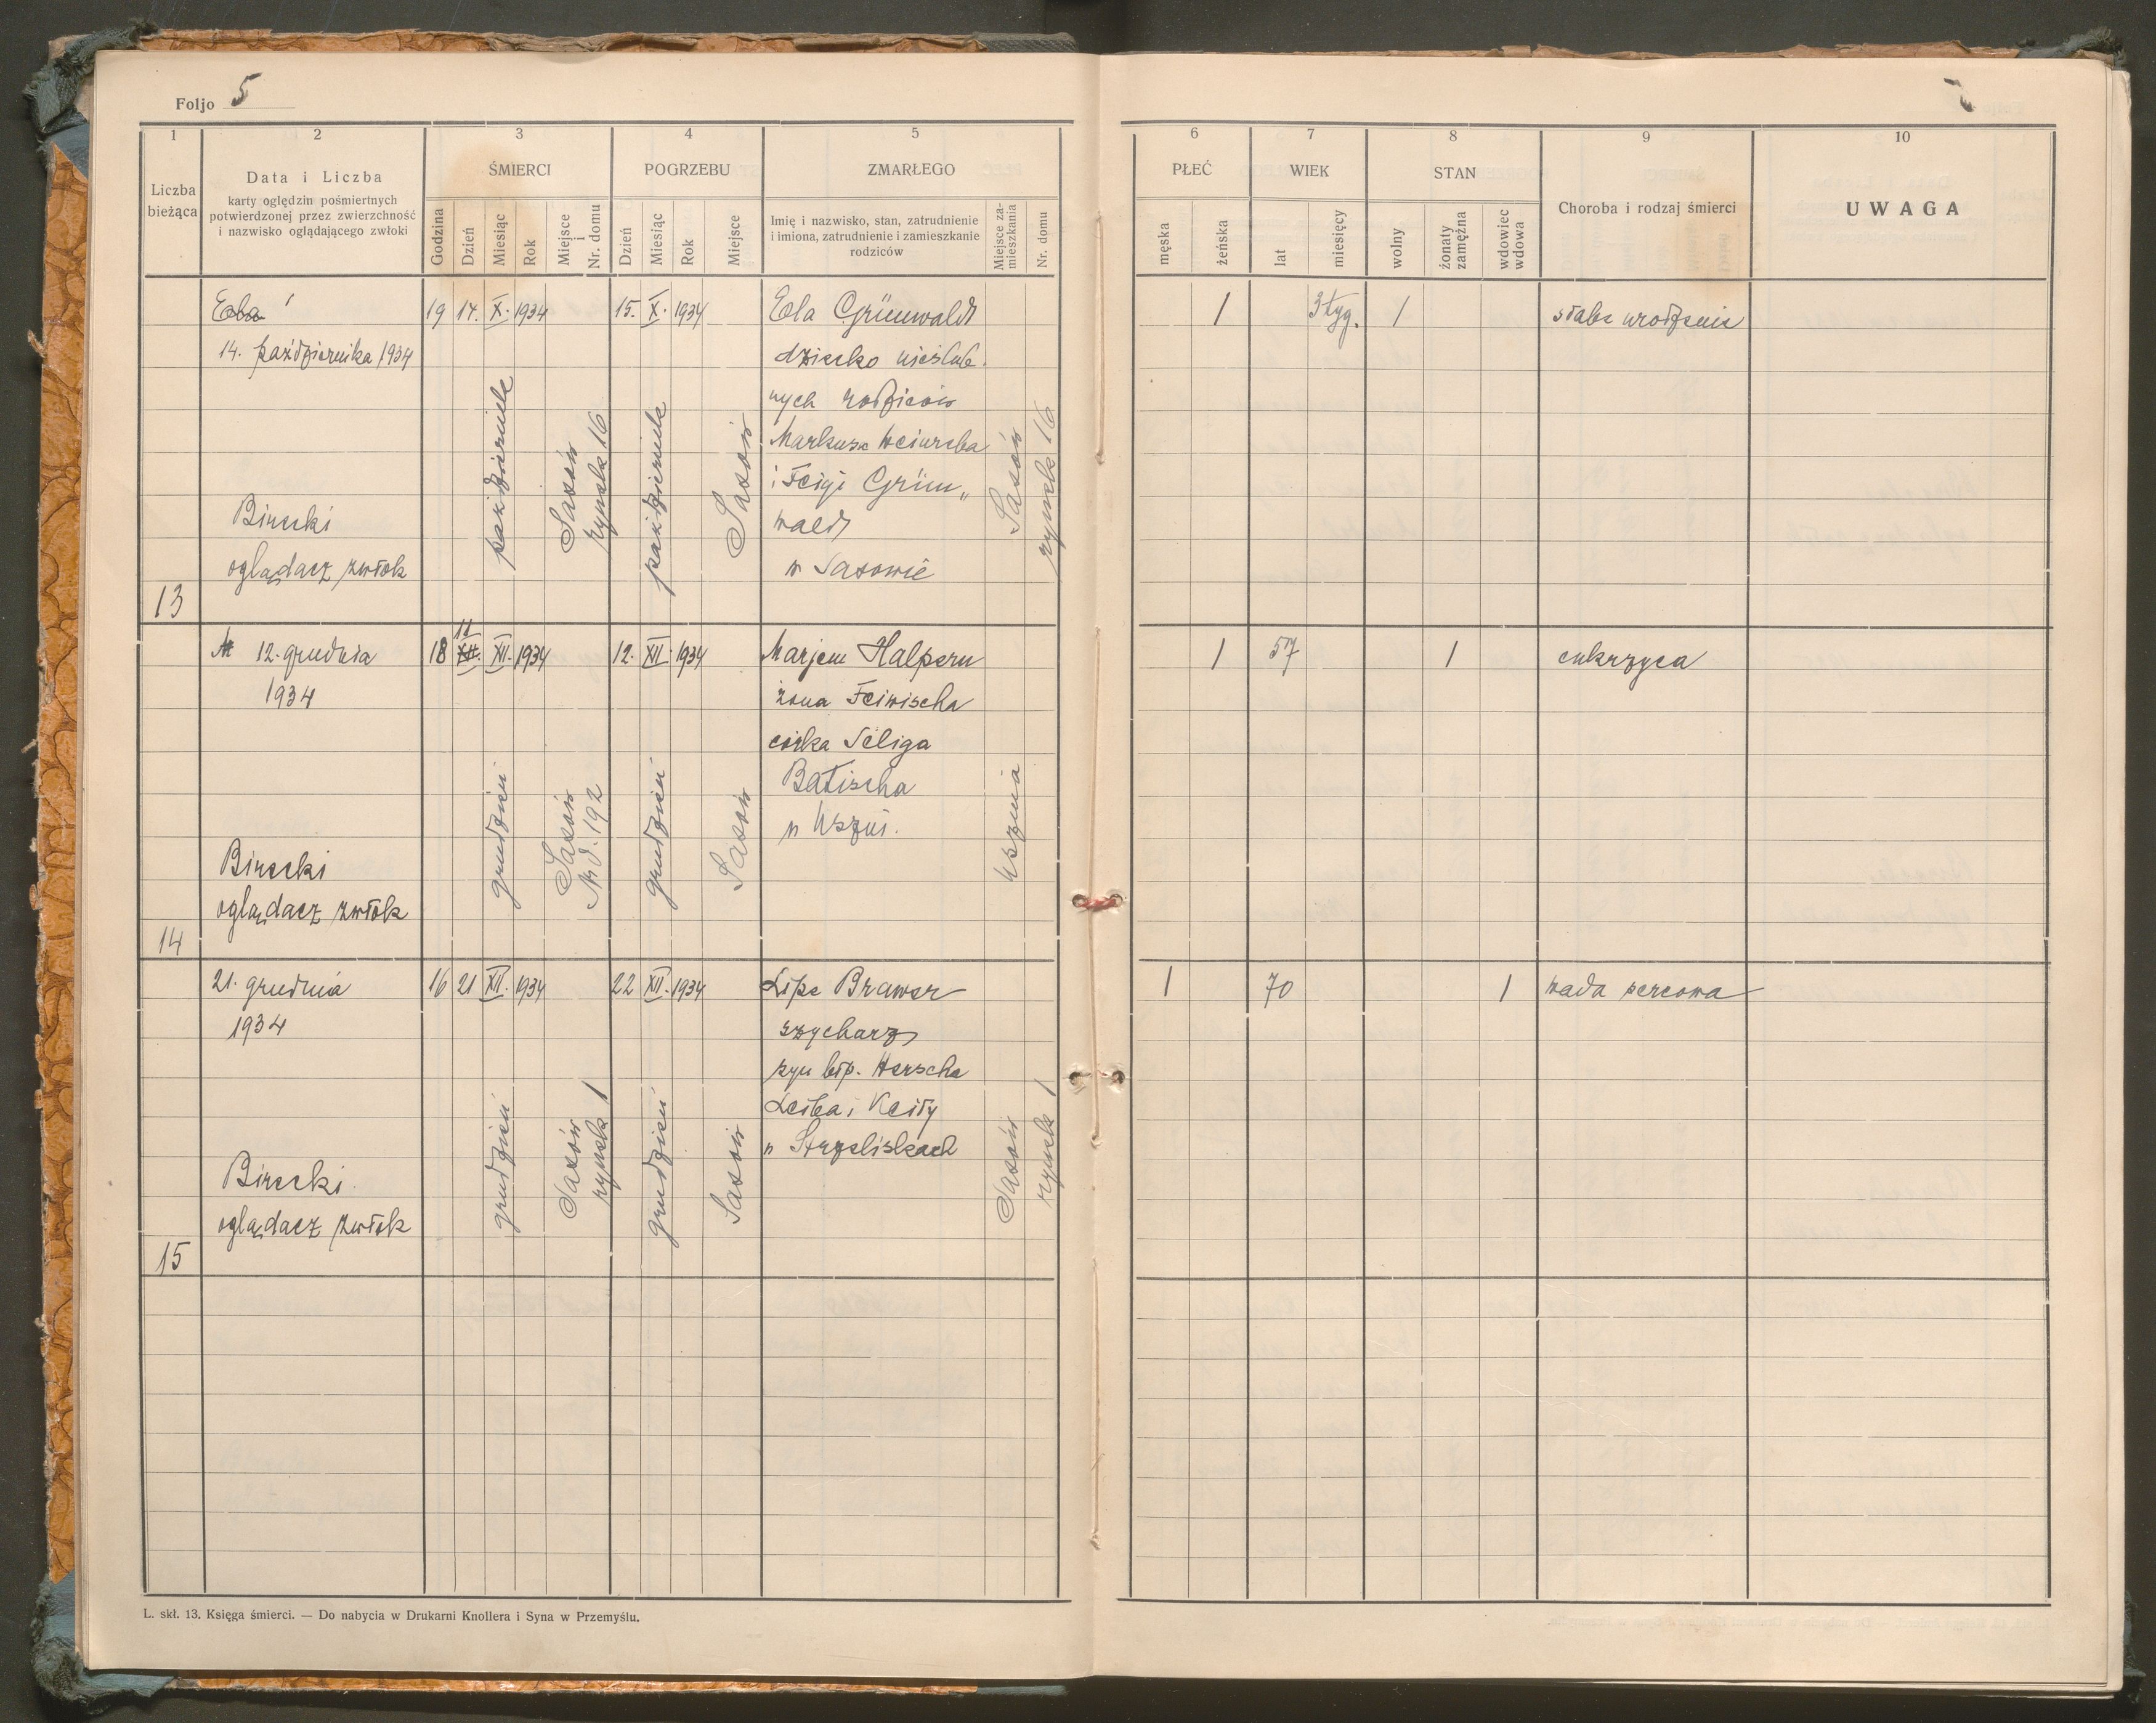 Foljo 5
1 2 3 4 5 6 7 8 9 10
Liczba bieżąca
Data i Liczba
karty oględzin pośmiertnych
potwierdzonej przez zwierzchność
i nazwisko oglądającego zwłoki
ŚMIERCI
Godzina
Dzień
Miesiąc
Rok
Miejsce i Nr. domu
POGRZEBU
Dzień
Miesiąc
Rok
Miejsce
ZMARŁEGO
Imię i nazwisko, stan, zatrudnienie
i imiona, zatrudnienie i zamieszkanie
rodziców
Miejsce za-
mieszkania
Nr. domu
PŁEĆ
męska
żeńska
WIEK
lat
miesięcy
STAN
wolny
żonaty
zamężna
wdowiec
wdowa
Choroba i rodzaj śmierci
UWAGA
13
14. października 1934
Birecki
oglądacz zwłok
19 14. X. 1934
październik
Sasów
rynek 16
15. X. 1934
październik
Sasów
Ela Grünwald
dziecko nieślub-
nych rodziców
Markusa
i Feigi Grün„
wald
w Sasowie
Sasów
rynek 16
1 3 tyg. 1
słabe urodzenie
14
12. grudnia
1934
Birecki
oglądacz zwłok
18 11 XII. 1934
grudzień
Sasów
Nr d. 192
12. XII. 1934
grudzień
Sasów
Marjem Halpern
żona Feiwischa
córka Seliga
Batischa
w Uszni.
Usznia
1 57 1
cukrzyca
15
21. grudnia
1934
Birecki
oglądacz zwłok
16 21 XII. 1934
grudzień
Sasów
rynek 1
22 XII. 1934
grudzień
Sasów
Lipe Brawer
syn błp. Herscha
Leiba i Keily
w Strzeliskach
Sasów
rynek 1
1 70 1
wada sercowa
L. skł. 13. Księga śmierci. — Do nabycia w Drukarni Knollera i Syna w Przemyślu.